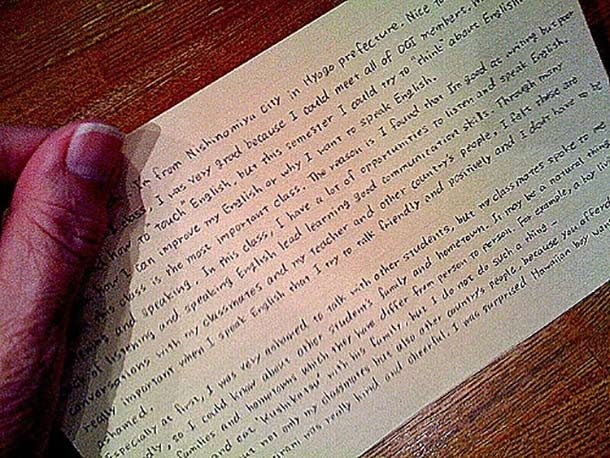 I'm from Nishinomiya City in Hyogo prefecture. Nice to
class. I was very good because I could meet all of OGI members.
how to touch English, but this semester I could try to "think" about English
how I can improve my English or why I want to speak English.
this class is the most important class. The reason is I found that I'm good at writing but poor
listening and speaking. In this class, I have a lot of opportunities to listen and speak English.
of listening and speaking English lead learning good communication skills. Through many
conversations with my classmates and my teacher and other country's people, I felt these are
really important when I speak English that I try to talk friendly and positively and I don't have to be
ashamed.
Especially at first, I was very ashamed to talk with other students, but my classmates spoke to me
friendly, so I could know about other student's family and hometown. It may be a natural thing
families and hometowns which they have differ from person to person. For example, a boy
and eat "kushikatsu" with his family, but I do not do such a thing.
not only my classmates but also other country's people, because you offered
was really kind and cheerful. I was surprised Hawaiian boy